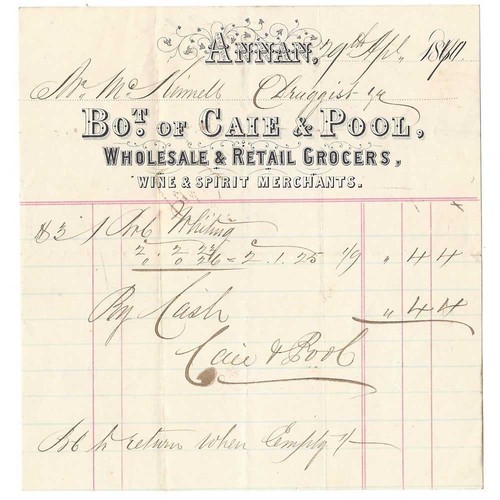 ANNAN, 29th Apl. 18
Mr. McKinnell Druggist
BOT. OF CAIE & POOL,
WHOLESALE & RETAIL GROCERS,
WINE & SPIRIT MERCHANTS.
1 Whiting
2 . 2 . 23
0 . 0 26 = 2 . 1 . 25 1/9 " 4 4
By Cash " 4 4
Caie & Pool
to return when Empty